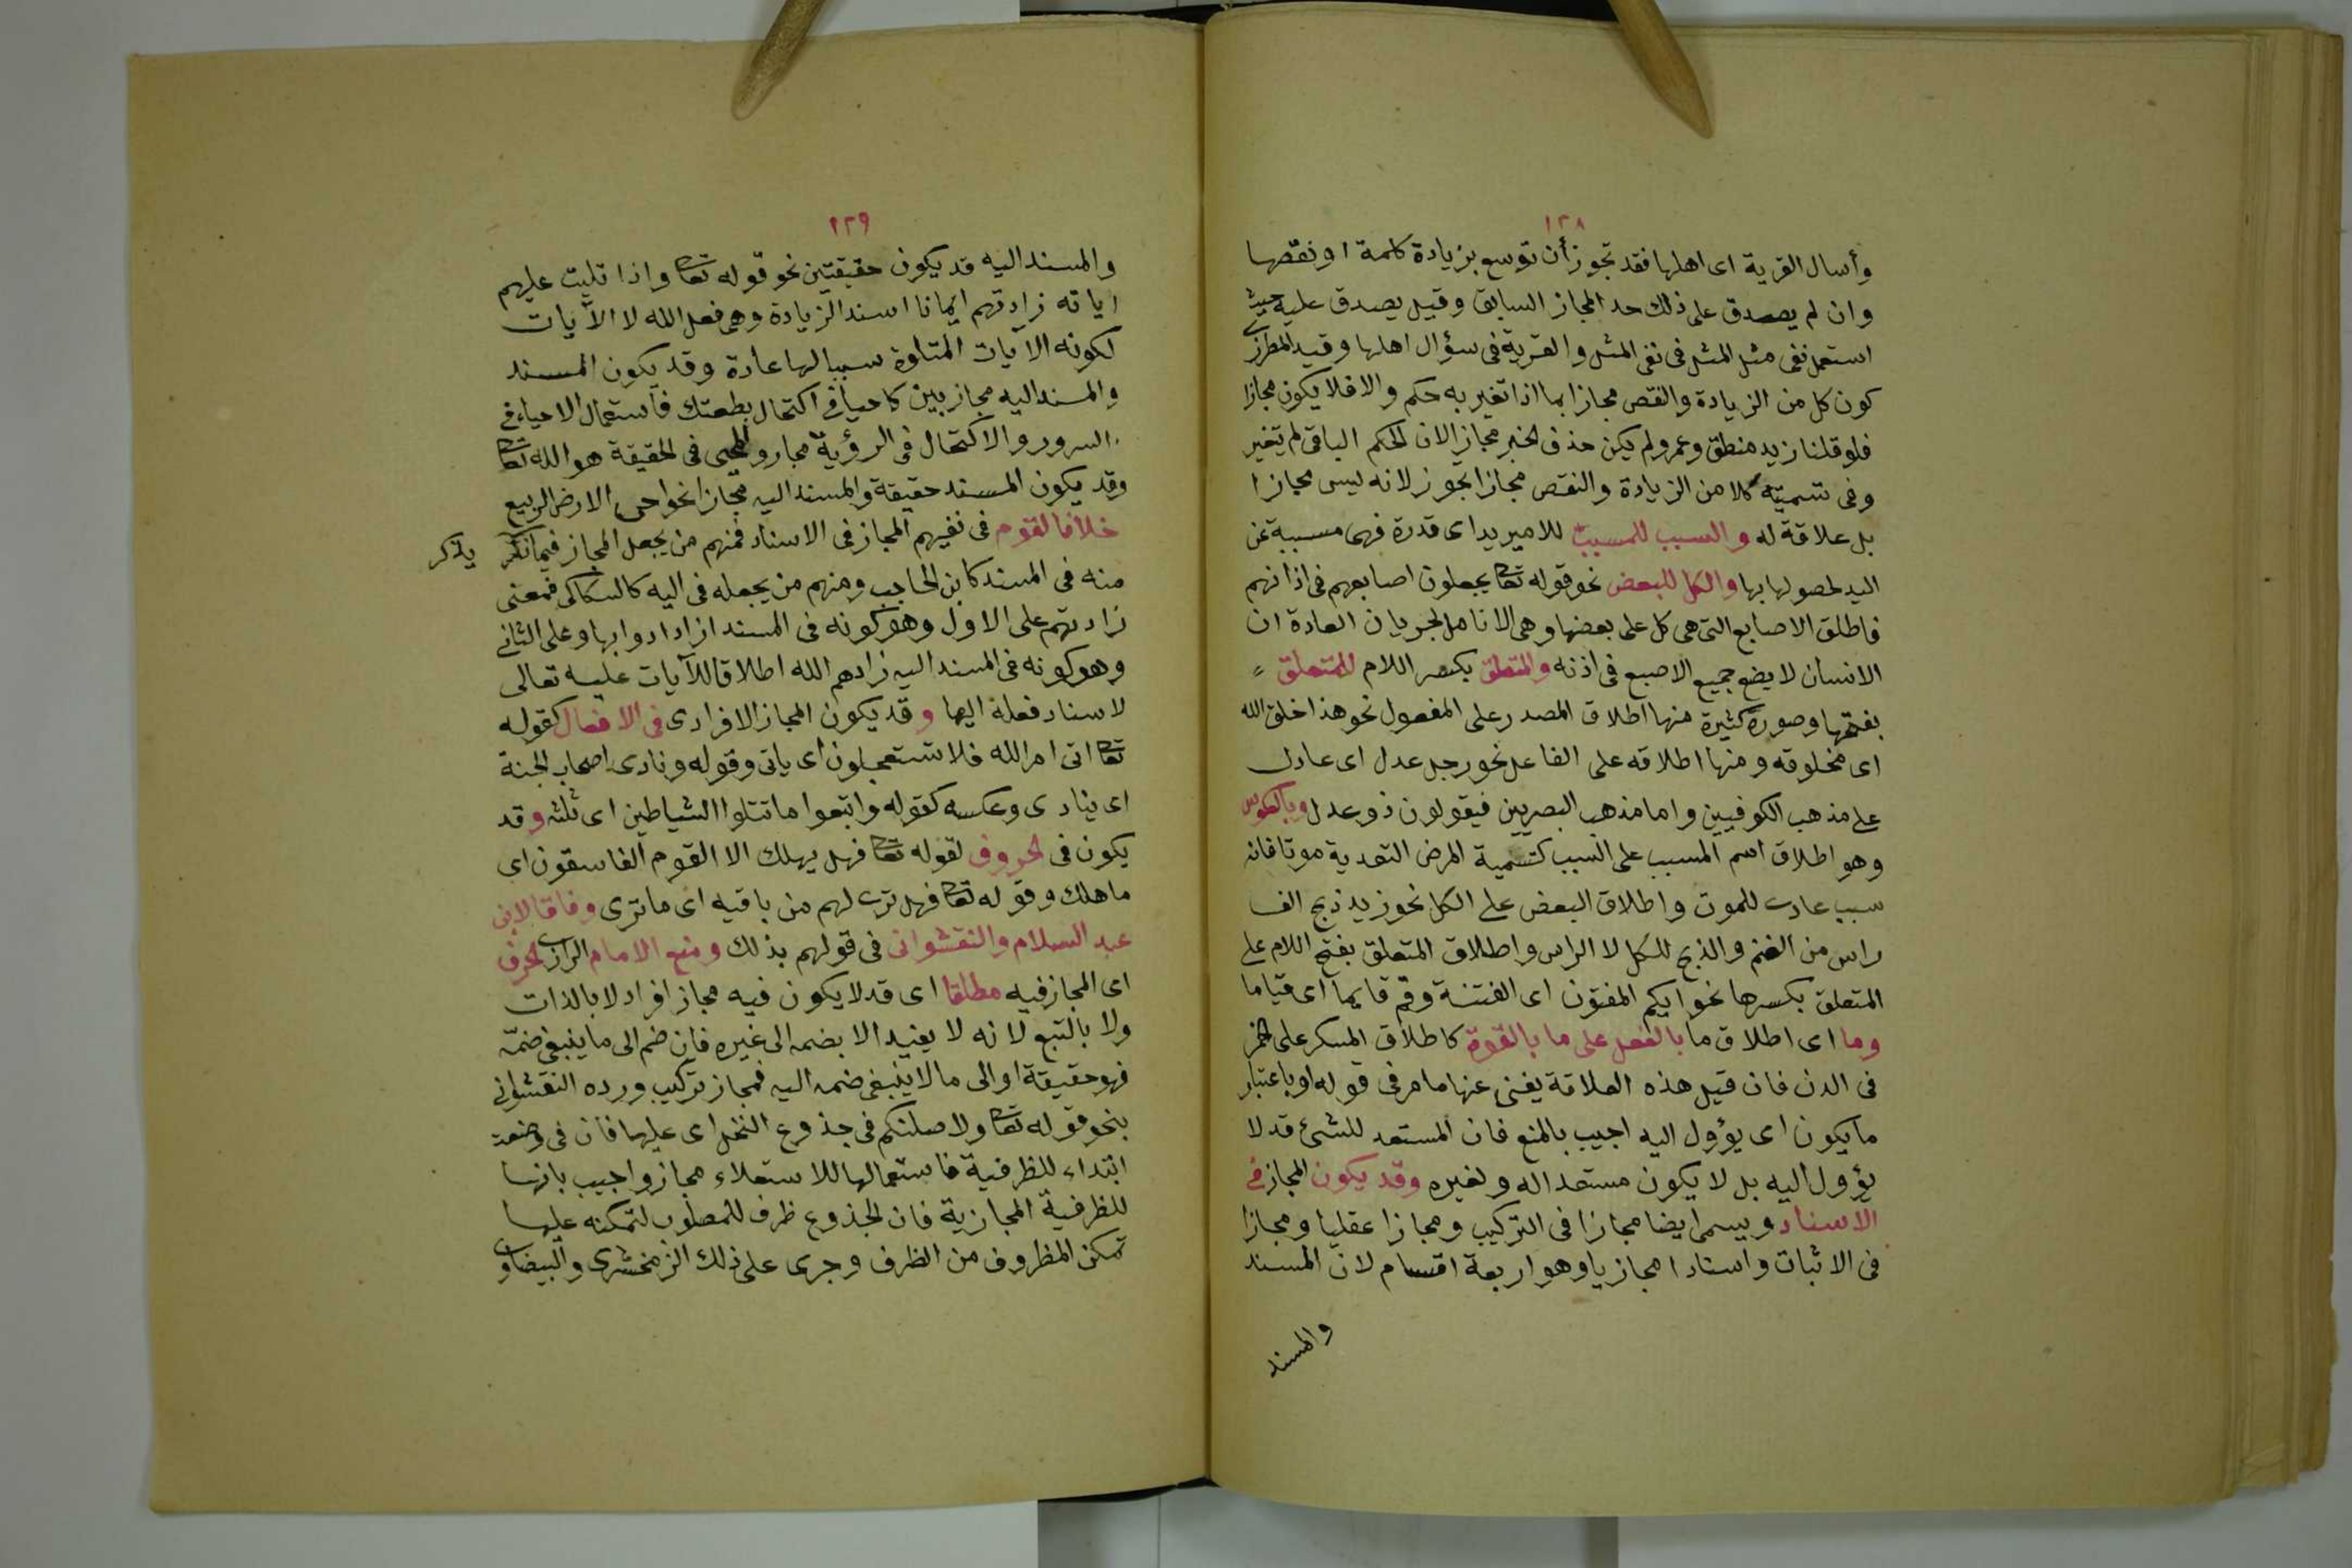 ١٣٨
وأسال القرية اى اهلها فقد تجوز أن توسع بزيادة كلمة او نقصها
وان لم يصدق على ذلك حد المجاز السابق وقيل يصدق عليه حيث
استعمل نفى مثل المثل فى نفى المثل والقرية فى سؤال اهلها وقيد المطرزى
كون كل من الزيادة والنقص مجازا بما اذا تغير به حكم والا فلا يكون مجازا
فلو قلنا زيد منطلق وعمرو لم يكن حذف الخبر مجاز الان الحكم الباقى لم يتغير
وفى تسميته كلا من الزيادة والنقص مجازا تجوز لانه ليس مجازا
بل علاقة له والسبب للمسبب للامير يد اى قدرة فهى مسببة عن
اليد لحصولها بها والكل للبعض نحو قوله تعا يجعلون اصابعهم فى اذانهم
فاطلق الاصابع التى هى كل على بعضها وهى الانامل لجريان العادة ان
الانسان لا يضع جميع الاصبع فى اذنه والمتعلق بكسر اللام للمتعلق
بفتحها وصوره كثيرة منها اطلاق المصدر على المفعول نحو هذا خلق الله
اى مخلوقه ومنها اطلاقه على الفاعل نحو رجل عدل اى عادل
على مذهب الكوفيين واما مذهب البصريين فيقولون ذو عدل وبالعكوس
وهو اطلاق اسم المسبب على السبب كتسمية المرض التعدية موتا فانه
سبب عادى للموت واطلاق البعض على الكل نحو زيد ذبح الف
راس من الغنم والذبح للكل لا الراس واطلاق المتعلق بفتح اللام على
المتعلق بكسرها نحو ايكم المفتون اى الفتنة وقم قايما اى قياما
وما اى اطلاق ما بالفعل على ما بالقوة كاطلاق المسكر على الخمر
فى الدن فان قيل هذه العلاقة يغنى عنها ما مر فى قوله او باعتبار
ما يكون اى يؤول اليه اجيب بالمنع فان المستعد للشئ قد لا
يؤول اليه بل لا يكون مستعدا له ولغيره وقد يكون المجاز فى
الاسناد ويسمى ايضا مجازا فى التركيب ومجازا عقليا ومجازا
فى الاثبات واسنادا مجازيا وهو اربعة اقسام لان المسند
والمسند
١٣٩
والمسند اليه قد يكون حقيقتين نحو قوله تعا واذا تليت عليهم
اياته زادتهم ايمانا اسند الزيادة وهى فعل الله لا الآيات
لكونه الآيات المتلوة سببا لها عادة وقد يكون المسند
والمسند اليه مجازيين كاحيانى اكتحال بطعتك فاستعمال الاحياء فى
السرور والاكتحال فى الرؤية مجاز والمحيى فى الحقيقة هو الله تعا
وقد يكون المسند حقيقة والمسند اليه مجازا نحو احى الارض الربيع
خلافا لقوم فى نفيهم المجاز فى الاسناد فمنهم من يجعل المجاز فيما نكر
يذكر
منه فى المسند كابن الحاجب ومنهم من يجعله فى اليه كالسكاكى فمعنى
زادتهم على الاول وهو كونه فى المسند ازدادوا بها وعلى الثانى
وهو كونه فى المسند اليه زادهم الله اطلاقا للآيات عليه تعالى
لاسناد فعله اليها وقد يكون المجاز الافرادى فى الافعال كقوله
تعا اتى امر الله فلا تستعجلون اى ياتى وقوله ونادى اصحاب الجنة
اى ينادى وعكسه كقوله واتبعوا ما تتلوا الشياطين اى تلته وقد
يكون فى الحروف لقوله تعا فهل يهلك الا القوم الفاسقون اى
ما هلك وقوله تعا فهل ترى لهم من باقيه اى ما ترى وفاقا لابن
عبد السلام والنقشوانى فى قولهم بذلك ومنع الامام الرازى الحرف
اى المجاز فيه مطلقا اى قد لا يكون فيه مجاز افراد لا بالذات
ولا بالتبع لانه لا يفيد الا بضمه الى غيره فان ضم الى ما ينبغى ضمّه
فهو حقيقة او الى ما لا ينبغى ضمه اليه فمجاز تركيب ورده النقشوانى
بنحو قوله تعا ولاصلبنكم فى جذوع النخل اى عليها فان فى وضعت
ابتداء للظرفية فاستعمالها للاستعلاء مجاز واجيب بانها
للظرفية المجازية فان الجذوع ظرف للمصلوب لتمكنه عليها
تمكن المظروف من الظرف وجرى على ذلك الزمخشرى والبيضاوى